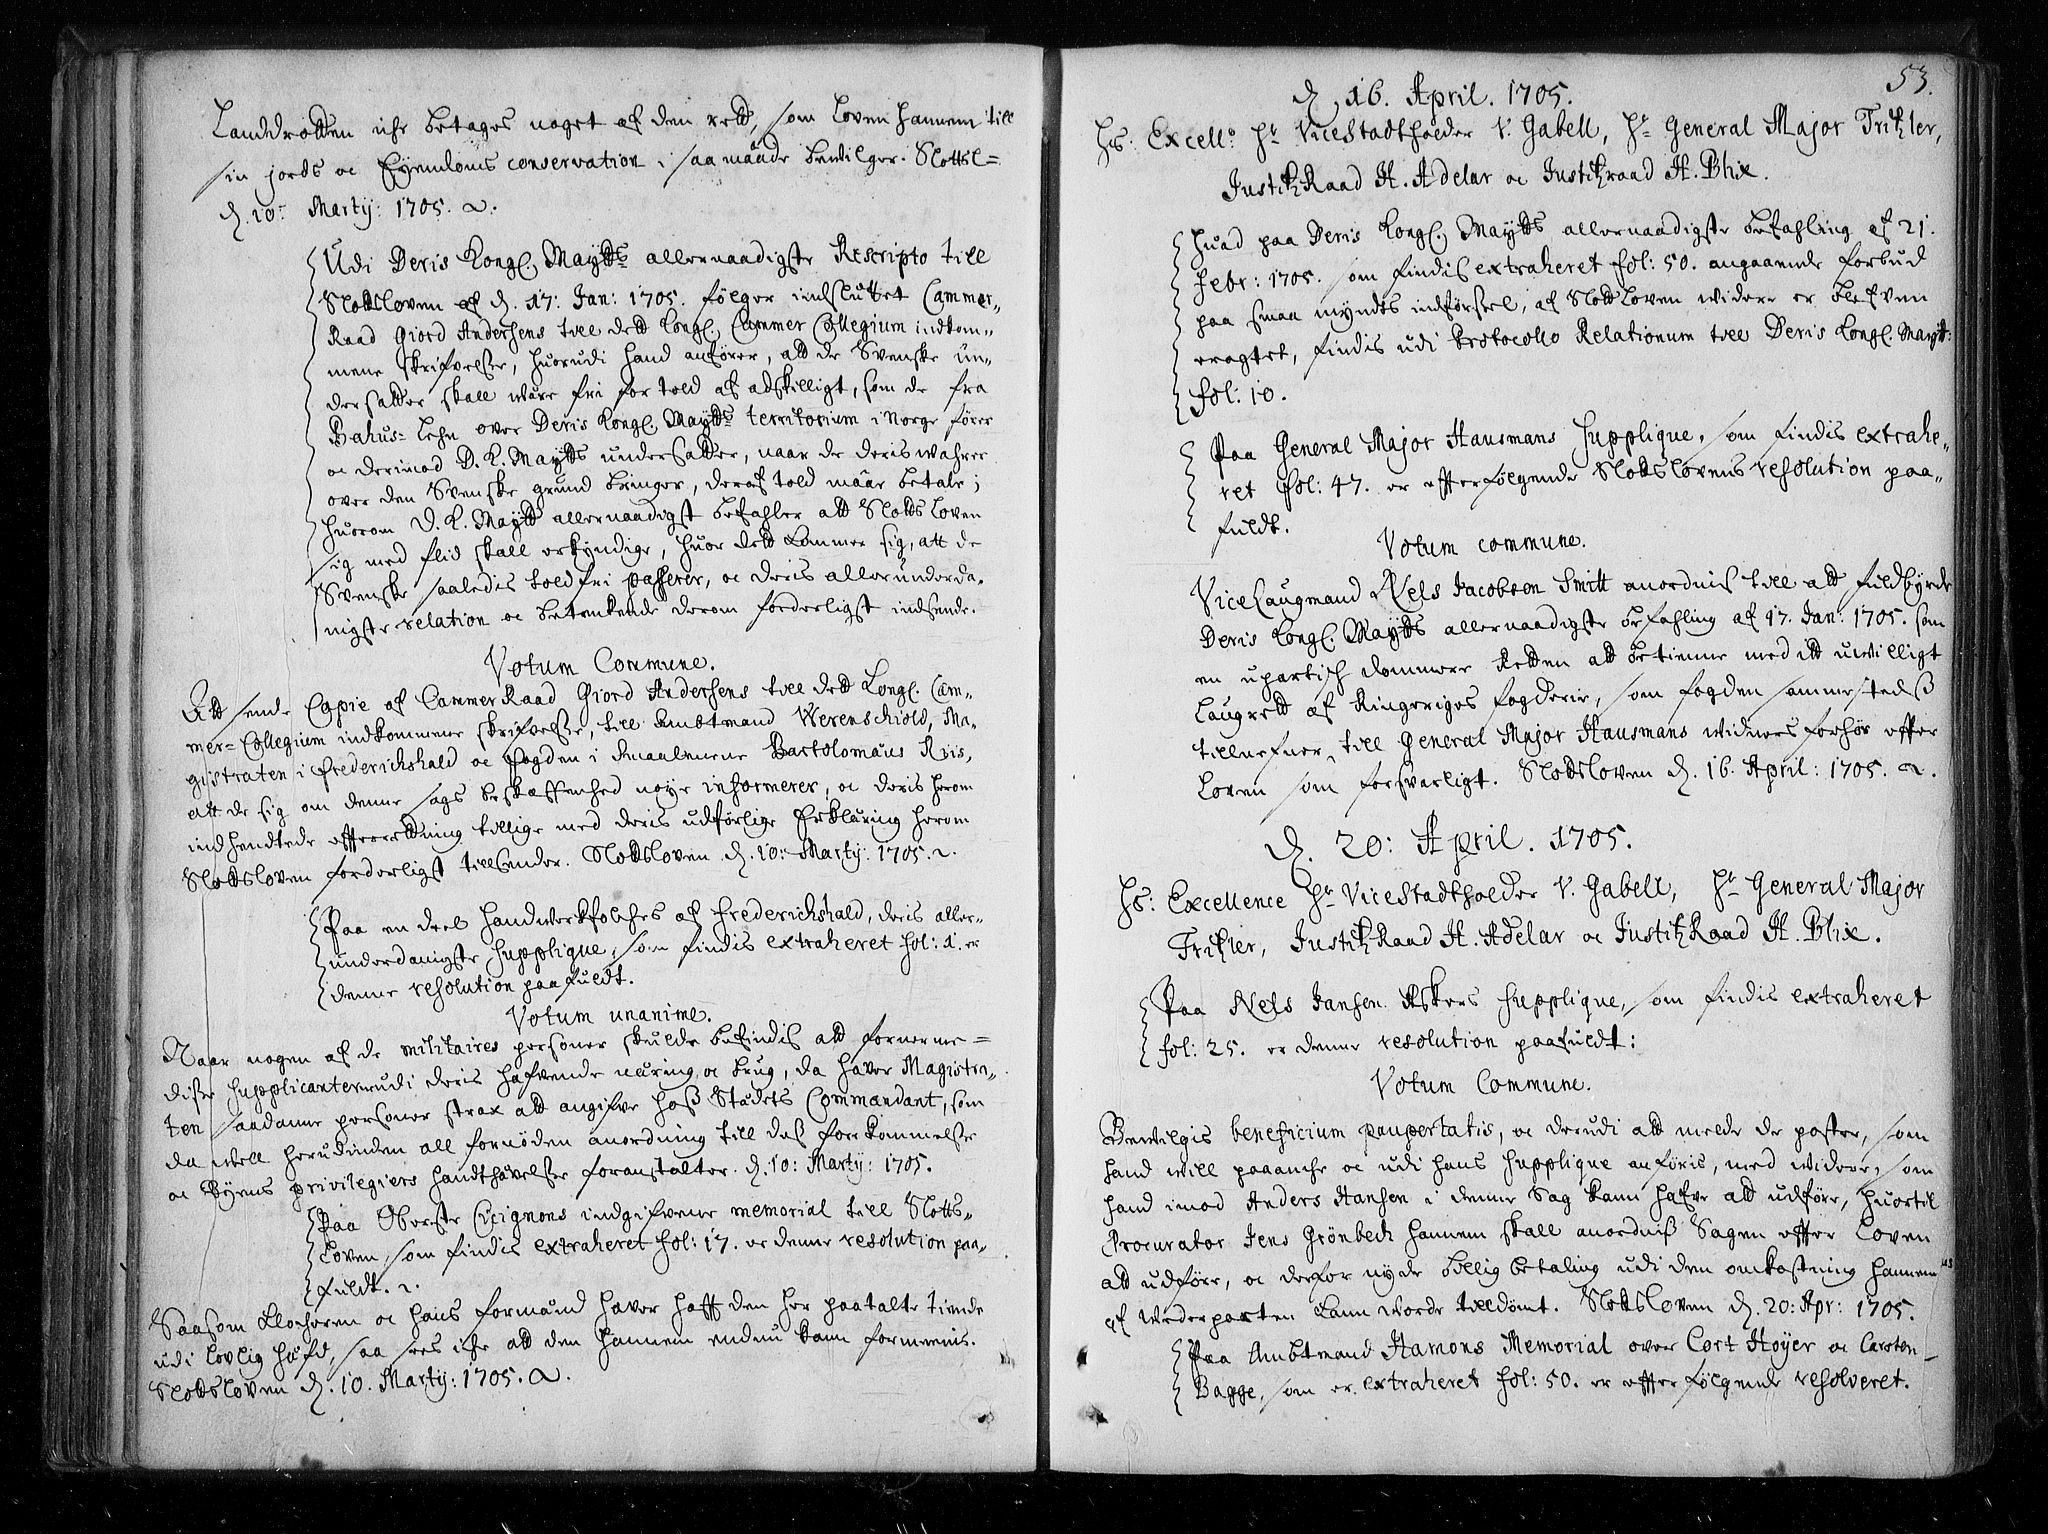 Landdrotten iche betages noget af den rett, som Loven hannem till
sin jords oc Eyendoms conservation i saa maade bevilger. Slottsl=
d. 10: Martij: 1705.
Udi Deris Kongl. Maytts allernaadigste Rescripto till
Slodsloven af d. 17: Jan: 1705. følger indsluttet Cammer-
Raad Giord Andersens till dett Kongl. Cammer Collegium indkom-
mene skrifvelse, huorudi hand anfører, att de Svenske un-
dersatter skall være fri for told af adskilligt, som de fra
Bahus-Lehn over Deris Kongl. Maytts territorium i Norge fører
oc derimod D. K. Maytts undersatter, naar de deris wahrer
over den Svenske grund bringer, deraf told maae betale;
huorom D. K. Maytt allernaadigst befahler att Slodsloven
sig med flid skall erkyndige, huor dett kommer sig, att de
Svenske saaledis toldfri passerer, oc deris allerunderda-
nigste relation oc betenkende derom forderligst indsende.
Votum Commune.
Att sende Copie af CammerRaad Giord Andersens till dett Kongl. Cam-
mer-Collegium indkommene skrifvelse, till Ambtmand Werenschiold, Ma-
gistraten i Frederichshald oc fogden i Smaalenene Bartolomæus Riis,
att de sig om denne sags beskaffenhed nøye informerer, oc deris herom
indhendtede efterretning tillige med deris udførlige Erklæring herom
Slodsloven forderligst tillsender. Slodsloven d. 10: Martij: 1705.
Paa en deel Handwerksfolches af Frederichshald, deris aller-
underdanigste Supplique, som findis extraheret fol: 1. er
denne resolution paafuldt.
Votum unanime.
Naar nogen af de militaires personer skulde befindis att fornerme
disse Supplicanter udi deris hafvende næring oc brug, da haver Magistra-
ten saadanne personer strax att angifve hoß Stædets Commandant, som
da well herudinden all fornøden anordning till deß forekommelse
oc Byens privilegiers handthævelse foranstalter. d. 10: Martij: 1705.
Paa Oberste Cicignons indgifvene memorial till Slotts-
Loven, som findis extraheret fol: 17. er denne resolution paa-
fuldt.
Saasom Klocheren oc hans formand haver hafft den her paatalte tiende
udi lovlig hæfd, saa sees iche att den hannem endnu kann formeenis.
Slodsloven d. 10. Martij: 1705.
53.
d. 16. April. 1705.
Hs: Excell: Hr ViceStadtholder V. Gabell, Hr General Major Tritzler,
JustitzRaad H. Adelar oc Justitzraad H. Blix.
Huad paa Deris Kongl. Maytts allernaadigste befahling af 21.
Febr: 1705. som findis extraheret fol: 50. angaaende forbud
paa smaa myndts indførsel, af Slodsloven widere er blefven
eragtet, findis udi Protocollo Relationum till Deris Kongl. Maytt:
fol: 10.
Paa General Major Hausmans Supplique, som findis extrahe-
ret fol: 47. er efterfølgende Slodslovens resolution paa-
fuldt.
Votum commune.
ViceLaugmand Niels Jacobsen Smitt anordnis till att fuldbyrde
Deris Kongl. Maytts allernaadigste befahling af 17. Jan: 1705. som
en upartisch dommere Retten att betienne med itt uwilligt
Laugrett af Ringeriges fogderie, som fogden sammesteds
tillnefner, till General Major Hausmans widners forhør efter
Loven som forsvarligt. Slodsloven d. 16. April: 1705.
d. 20: April. 1705.
Hs: Excellence Hr ViceStadtholder V. Gabell, Hr General Major
Tritzler, JustitzRaad H. Adelar oc JustitzRaad H. Blix.
Paa Niels Jansen Askers Supplique, som findis extraheret
fol: 25. er denne resolution paafuldt:
Votum Commune.
Bewilgis beneficium paupertatis, oc derudi att melde de poster, som
hand will paaanche oc udi hans Supplique anføris, med widere, som
hand imod Anders Hansen i denne Sag kann hafve att udføre, huortil
Procurator Jens Grönbech hannem skall anordniß Sagen efter Loven
att udføre, oc derfor nyde billig betaling udi den omkostning hannem
af Wederparten kann worde tilldømt. Slodsloven d. 20: Apr: 1705.
Paa Ambtmand Hamons Memorial over Cort Höyer oc Carsten
Bagge, som er extraheret fol: 50. er efterfølgende resolveret.